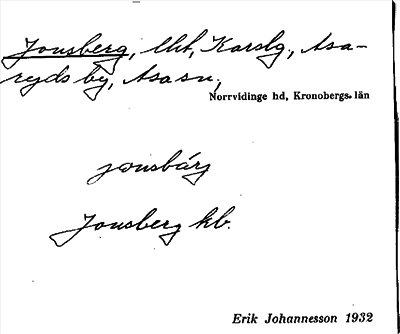 Jonsberg, lht, Karslg, Asa-
ryds by, Asa sn,
Norrvidinge hd, Kronobergs län
jonsbárj
Jonsberg kb.
Erik Johannesson 1932